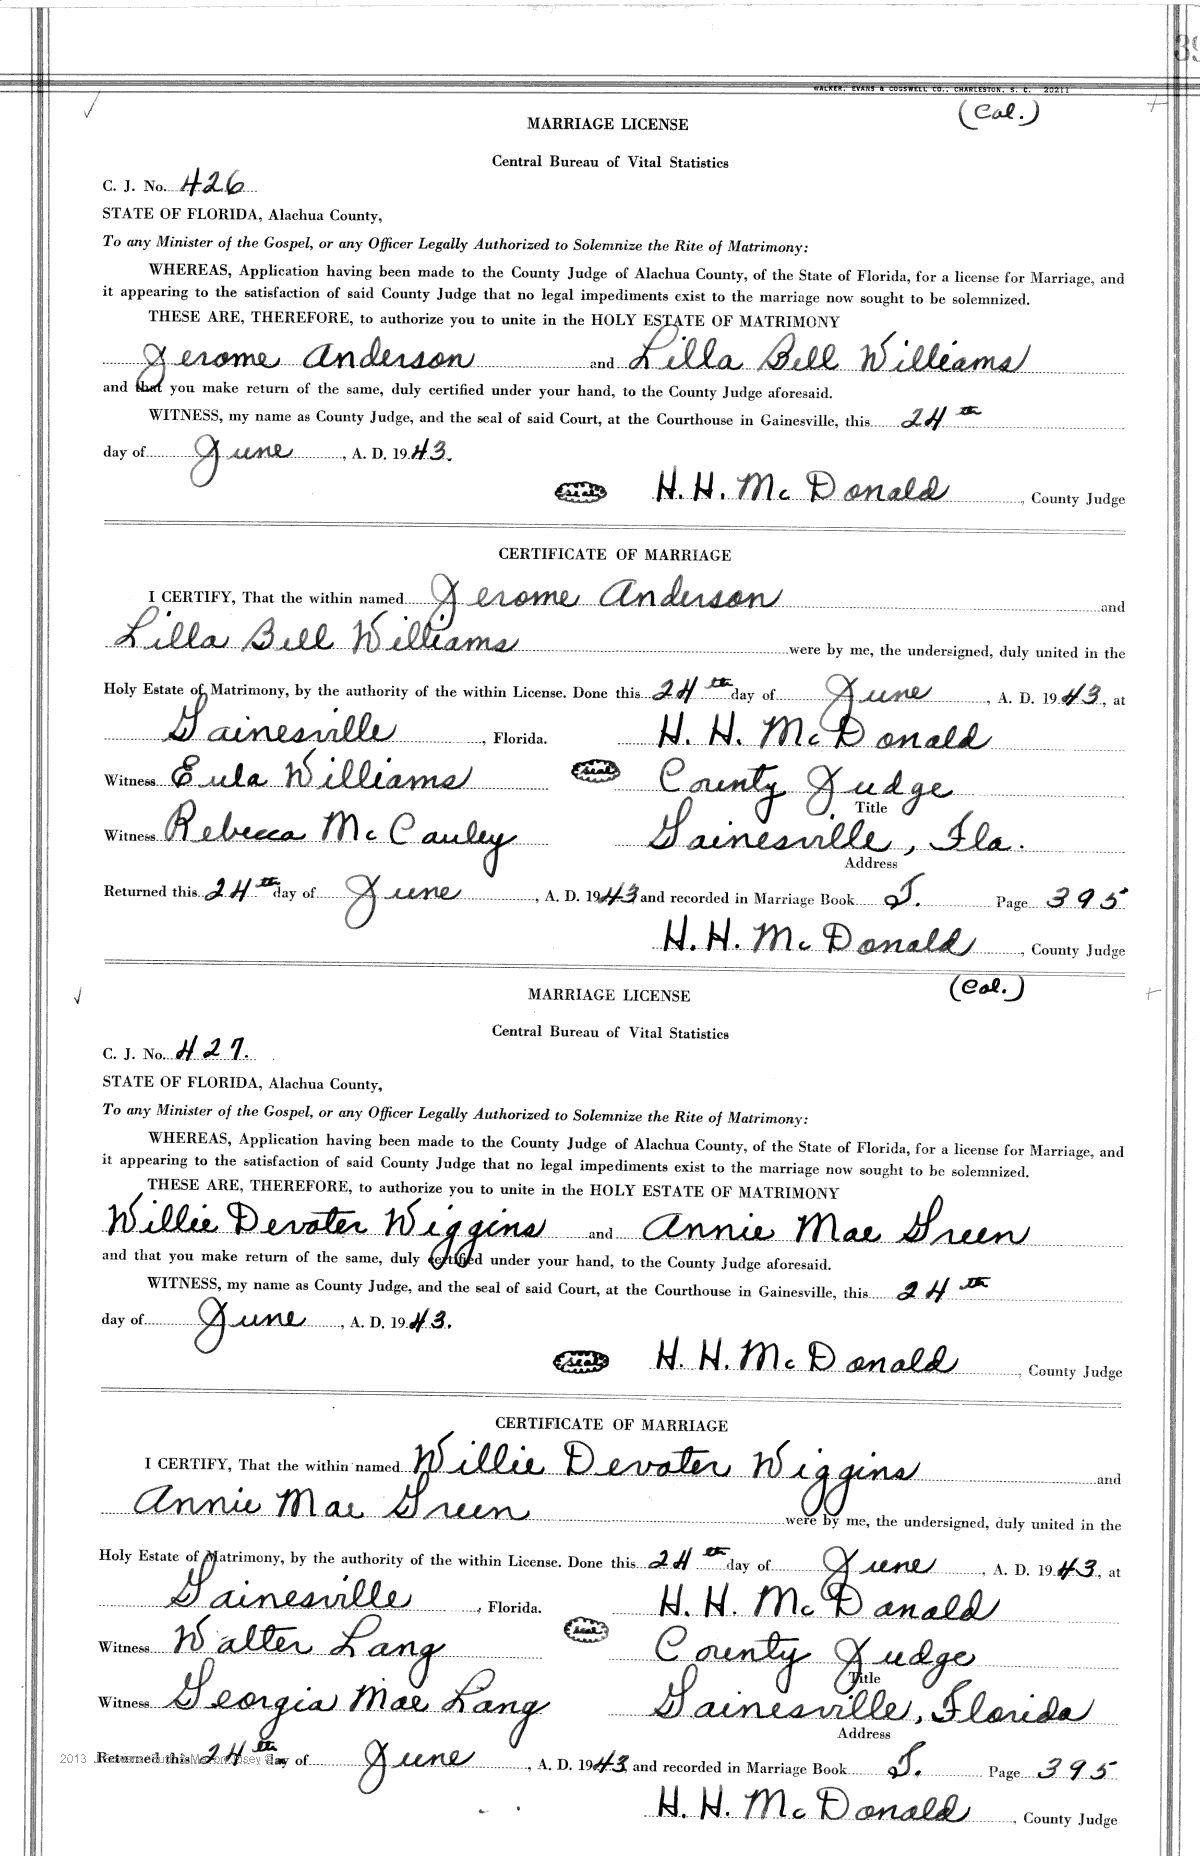 39
WALKER, EVANS & COGSWELL CO., CHARLESTON, S. C. 20211
(Col.)
MARRIAGE LICENSE
Central Bureau of Vital Statistics
C. J. No. 426
STATE OF FLORIDA, Alachua County,
To any Minister of the Gospel, or any Officer Legally Authorized to Solemnize the Rite of Matrimony:
WHEREAS, Application having been made to the County Judge of Alachua County, of the State of Florida, for a license for Marriage, and
it appearing to the satisfaction of said County Judge that no legal impediments exist to the marriage now sought to be solemnized.
THESE ARE, THEREFORE, to authorize you to unite in the HOLY ESTATE OF MATRIMONY
Jerome Anderson and Lilla Bell Williams
and that you make return of the same, duly certified under your hand, to the County Judge aforesaid.
WITNESS, my name as County Judge, and the seal of said Court, at the Courthouse in Gainesville, this 24th
day of June, A. D. 1943.
seal H. H. McDonald, County Judge
CERTIFICATE OF MARRIAGE
I CERTIFY, That the within named Jerome Anderson and
Lilla Bell Williams were by me, the undersigned, duly united in the
Holy Estate of Matrimony, by the authority of the within License. Done this 24th day of June, A. D. 1943, at
Gainesville, Florida. H. H. McDonald
Witness Eula Williams seal County Judge
Title
Witness Rebecca McCauley Gainesville, Fla.
Address
Returned this 24th day of June, A. D. 1943 and recorded in Marriage Book J. Page 395
H. H. McDonald, County Judge
(Col.)
MARRIAGE LICENSE
Central Bureau of Vital Statistics
C. J. No. 427.
STATE OF FLORIDA, Alachua County,
To any Minister of the Gospel, or any Officer Legally Authorized to Solemnize the Rite of Matrimony:
WHEREAS, Application having been made to the County Judge of Alachua County, of the State of Florida, for a license for Marriage, and
it appearing to the satisfaction of said County Judge that no legal impediments exist to the marriage now sought to be solemnized.
THESE ARE, THEREFORE, to authorize you to unite in the HOLY ESTATE OF MATRIMONY
Willie Devoter Wiggins and Annie Mae Green
and that you make return of the same, duly certified under your hand, to the County Judge aforesaid.
WITNESS, my name as County Judge, and the seal of said Court, at the Courthouse in Gainesville, this 24th
day of June, A. D. 1943.
seal H. H. McDonald, County Judge
CERTIFICATE OF MARRIAGE
I CERTIFY, That the within named Willie Devoter Wiggins and
Annie Mae Green were by me, the undersigned, duly united in the
Holy Estate of Matrimony, by the authority of the within License. Done this 24th day of June, A. D. 1943, at
Gainesville, Florida. H. H. McDonald
Witness Walter Lang seal County Judge
Title
Witness Georgia Mae Lang Gainesville, Florida
Address
Returned this 24th day of June, A. D. 1943 and recorded in Marriage Book J. Page 395
2013
H. H. McDonald, County Judge